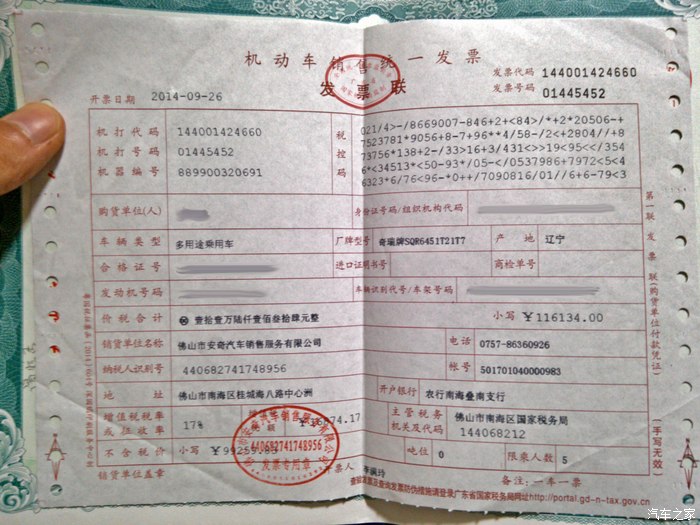 机动车销售统一发票
发票联
发票代码 144001424660
发票号码 01445452
开票日期 2014-09-26
机打代码 144001424660
机打号码 01445452
机器编号 889900320691
税控码
021/4>-/8669007-846+2+<84>/*+2*20506-+
7523781*9056+8-7+96**4/58-/2<+2804//+8
73756*138+2-/33>16+3/431<>>19<95<</354
6*<34513*<50-93*/05-</0537986+7972<5<4
6323*6/76<96-*0++/7090816/01//6+6-79<3
购货单位(人) 身份证号码/组织机构代码
车辆类型 多用途乘用车 厂牌型号 奇瑞牌SQR6451T21T7 产地 辽宁
合格证号 进口证明书号 商检单号
发动机号码 车辆识别代号/车架号码
价税合计 ⊗ 壹拾壹万陆仟壹佰叁拾肆元整 小写 ￥116134.00
销货单位名称 佛山市安奇汽车销售服务有限公司 电话 0757-86360926
纳税人识别号 440682741748956 账号 501701040000983
地址 佛山市南海区桂城海八路中心洲 开户银行 农行南海叠南支行
增值税税率或征收率 17% 主管税务机关及代码 佛山市南海区国家税务局 144068212
不含税价 小写 吨位 0 限乘人数 5
440682741748956
发票专用章
销货单位盖章 票人 备注：一车一票
查验发票及查询发票防伪措施请登录广东省国家税务局网址http://portal.gd-n-tax.gov.cn
第一联 发票联(购货单位付款凭证)
(手写无效)
汽车之家